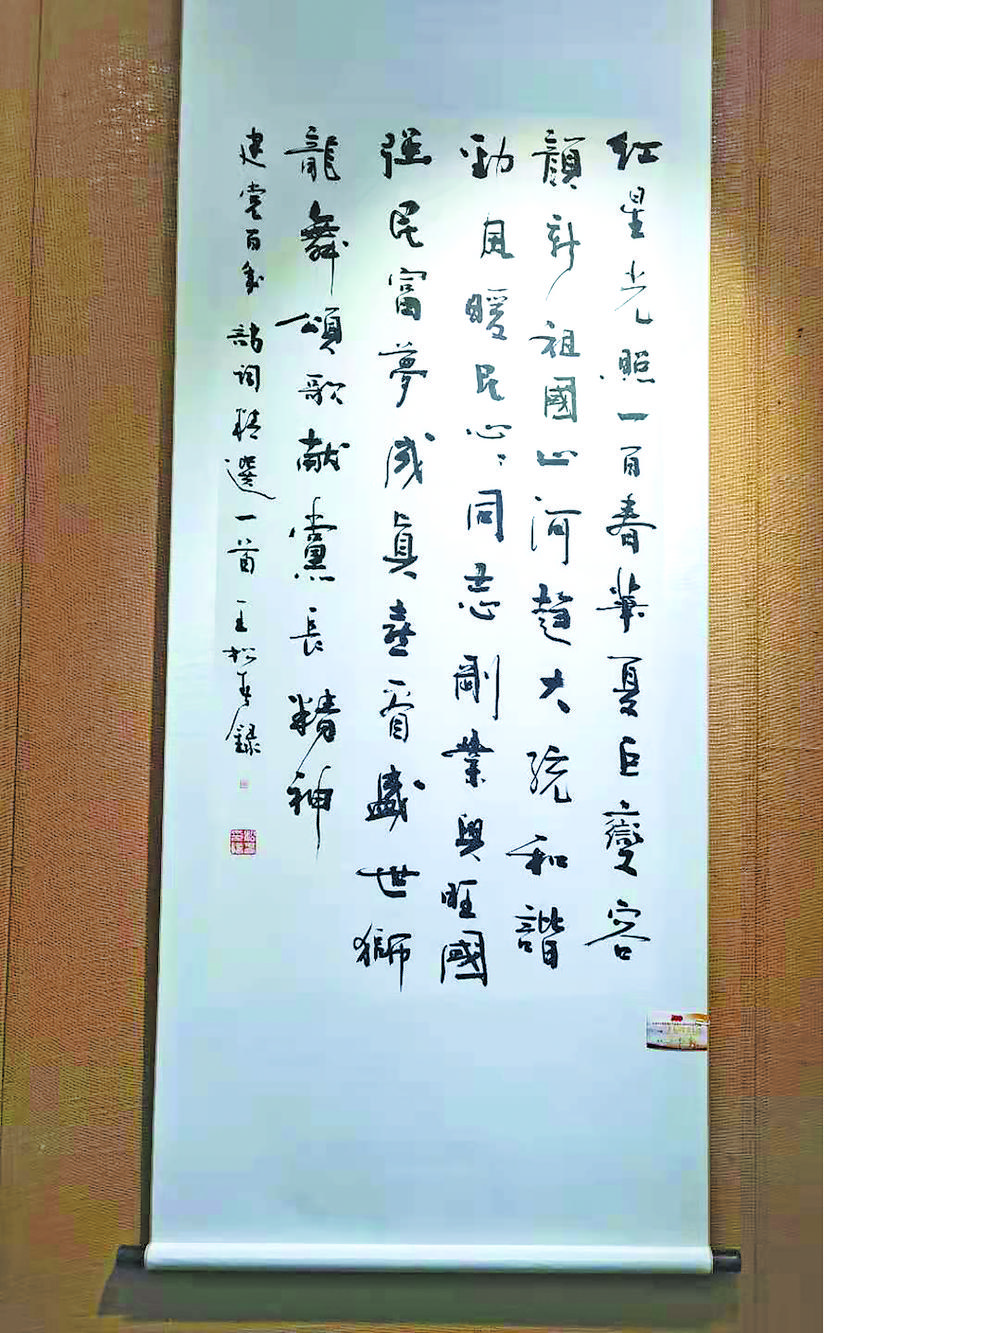 紅星光照一百春華夏巨變容
顏新祖國山河趨大統和諧
勁風暖民心、同志剛業興旺國
强民富夢成真喜看盛世獅
龍舞頌歌献黨長精神
建党百年詩詞精選一首王松春錄